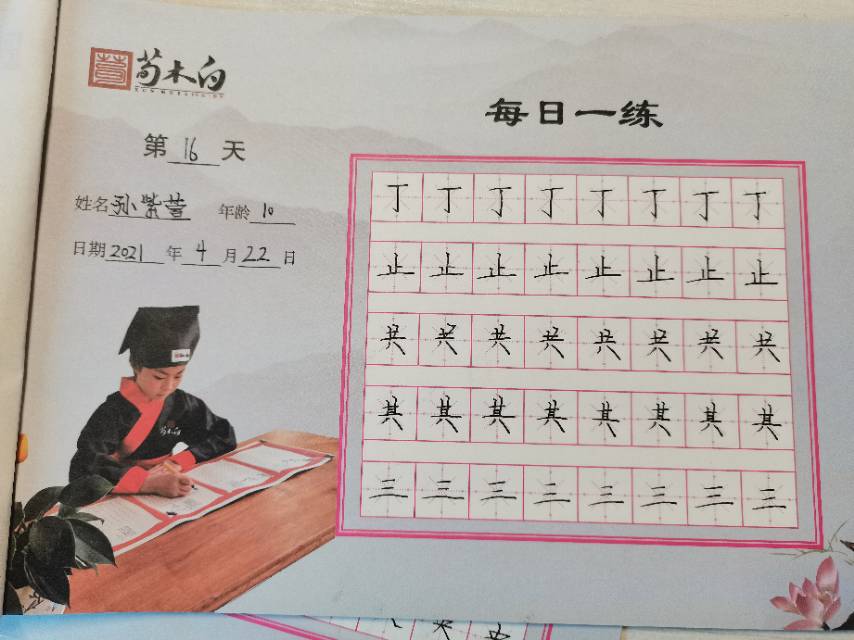 荀木白
每日一练
第 16 天
姓名 孙紫萱 年龄 10
日期 2021 年 4 月 22 日
丁 丁 丁 丁 丁 丁 丁 丁
止 止 止 止 止 止 止 止
共 共 共 共 共 共 共 共
其 其 其 其 其 其 其 其
三 三 三 三 三 三 三 三
荀木白